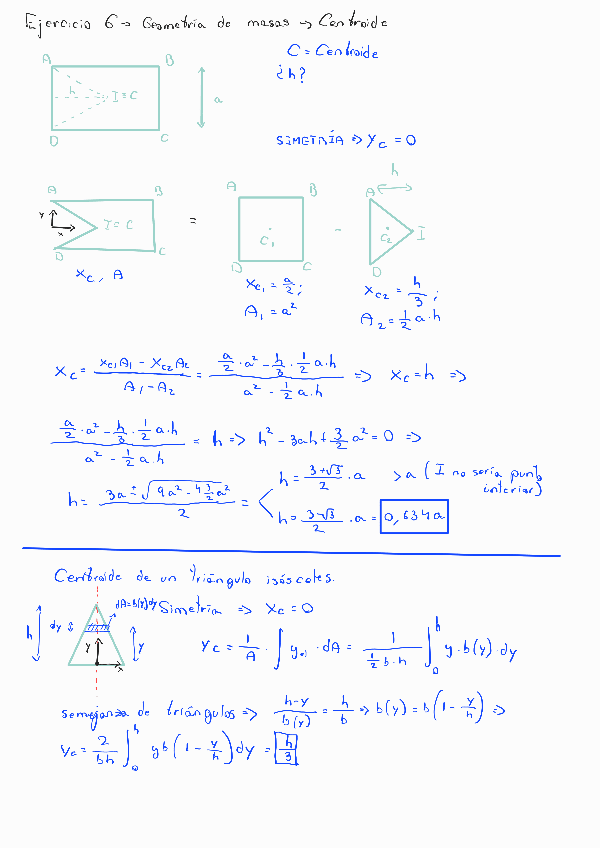 Ejercicio 6 → Geometría de masas → Centroide
C = Centroide
¿h?
A B
h I≡C a
D C
SIMETRÍA ⇒ Yc = 0
A B = A B - h A
Y X I≡C C1 C2 I
D C D C D
Xc, A
Xc1 = a/2; Xc2 = h/3;
A1 = a² A2 = 1/2 a·h
Xc = (Xc1 A1 - Xc2 A2)/(A1 - A2) = (a/2 · a² - h/3 · 1/2 a·h)/(a² - 1/2 a·h) ⇒ Xc = h ⇒
(a/2 · a² - h/3 · 1/2 a·h)/(a² - 1/2 a·h) = h ⇒ h² - 3ah + 3/2 a² = 0 ⇒
h = (3a ± √(9a² - 4 3/2 a²))/2 =
h = (3+√3)/2 · a > a ( I no sería punto interior)
h = (3-√3)/2 · a = 0,634a
Centroide de un triángulo isósceles.
dA = b(y)dy Simetría ⇒ Xc = 0
h dy y y x
Yc = 1/A · ∫ yel · dA = 1/(1/2 b·h) ∫₀ʰ y·b(y)·dy
semejanza de triángulos ⇒ (h-y)/b(y) = h/b ⇒ b(y) = b(1 - y/h) ⇒
Yc = 2/(bh) ∫₀ʰ yb(1 - y/h)dy = h/3